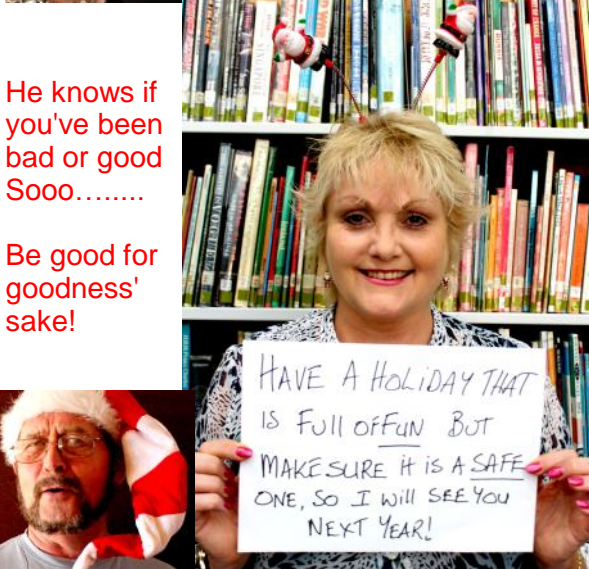 He knows if
you've been
bad or good
Sooo….....
Be good for
goodness'
sake!
HAVE A HOLIDAY THAT
IS FULL OF FUN BUT
MAKE SURE IT IS A SAFE
ONE, SO I WILL SEE YOU
NEXT YEAR!